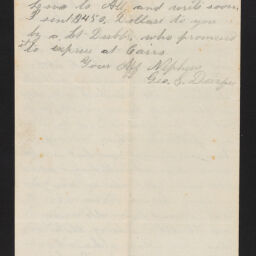 Love to All and write soon,
I sent $450, Dollars to you
by a Lt. who promised
to express at Cairo
Your Aff Nephew
Geo. S.